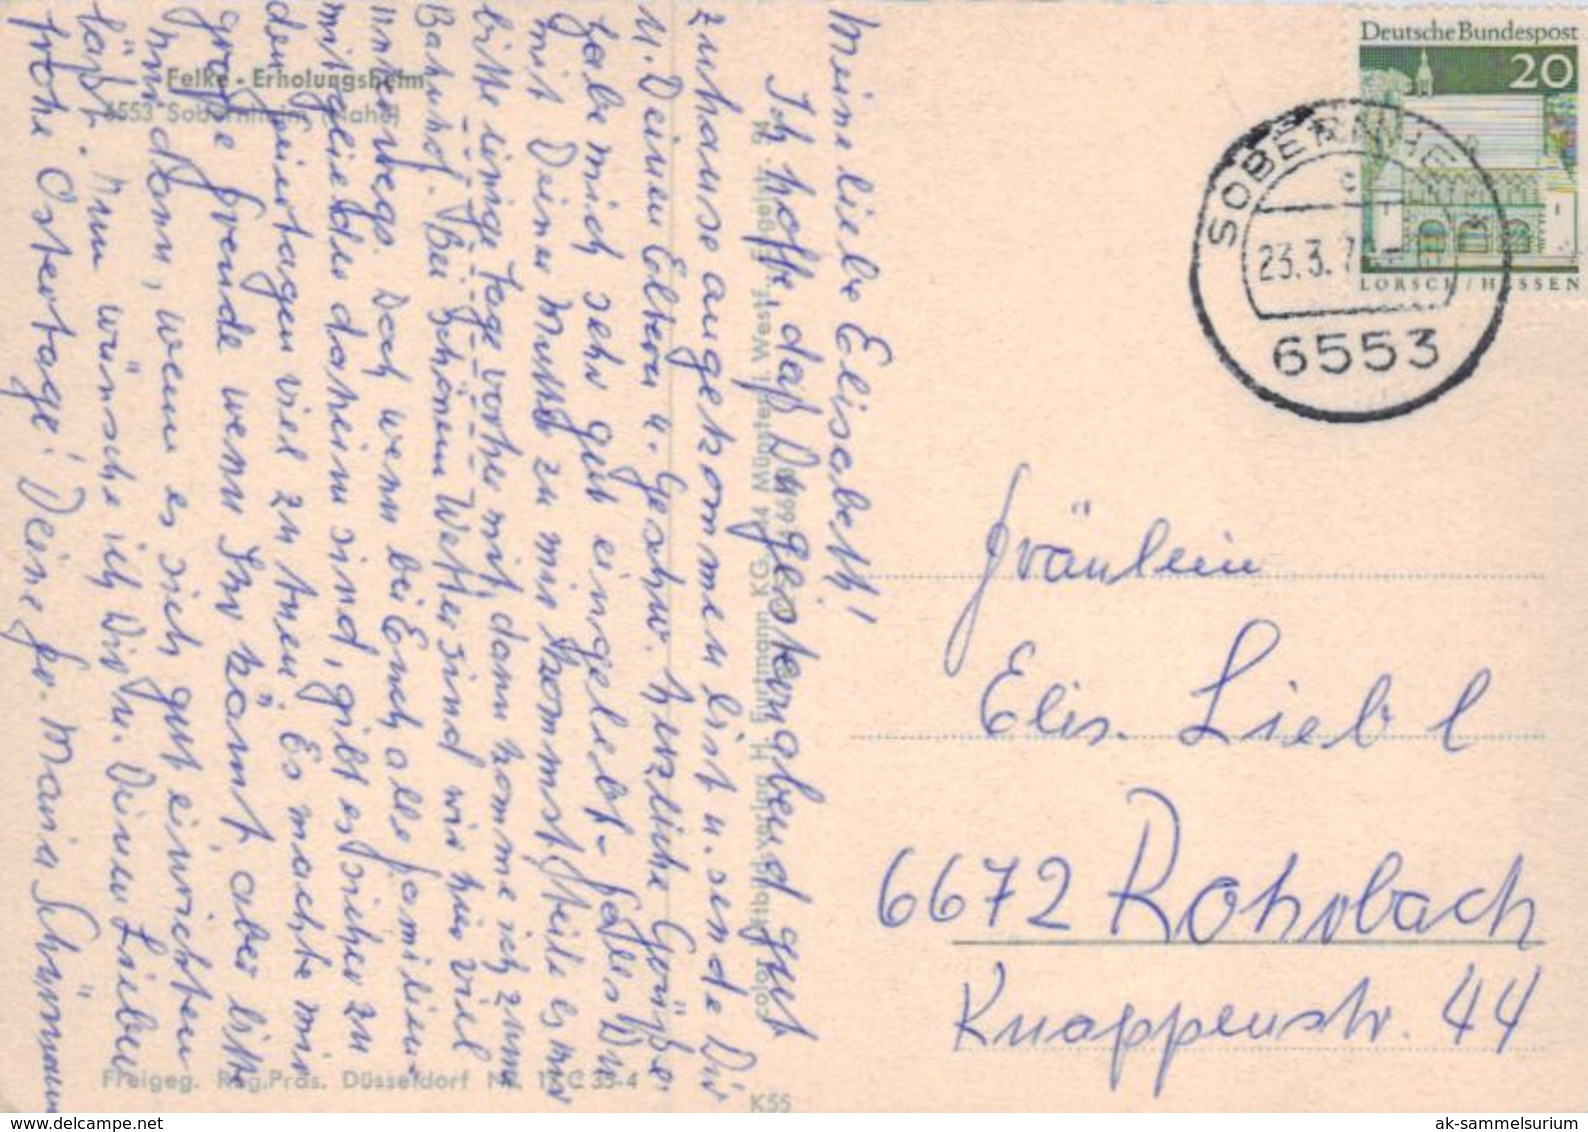 Felke - Erholungsheim
6553 Sobernheim (Nahe)
Meine liebe Elisabeth!
Ich hoffe, daß Du gesternabend gut
zuhause angekommen bist u. sende Dir
u. Deinen Eltern u. Geschw. herzliche Grüße.
Habe mich sehr gut eingelebt. Falls Du
mit Deiner Mutti zu mir kommst, teile es mir
bitte einige Tage vorher mit, dann komme ich zum
Bahnhof. Bei schönem Wetter sind wir hier viel
unterwegs. Doch wenn bei Euch alle Familien-
mitglieder daheim sind, gibt es sicher zu
den Feiertagen viel zu tuen. Es machte mir
große Freude wenn Ihr kämt, aber bitte
nur dann, wenn es sich gut einrichten
läßt. Nun wünsche ich Dir u. Deinen Lieben
frohe Ostertage! Deine Fr. Maria Schürmann
Freigeg. Reg.Präs. Düsseldorf Nr. 18 C 35-4
K55
Deutsche Bundespost
20
LORSCH / HESSEN
SOBERNHE
23.3.7
6553
Fräulein
Elis. Liebl
6672 Rohrbach
Knappenstr. 44
ak-sammelsurium
delcampe.net